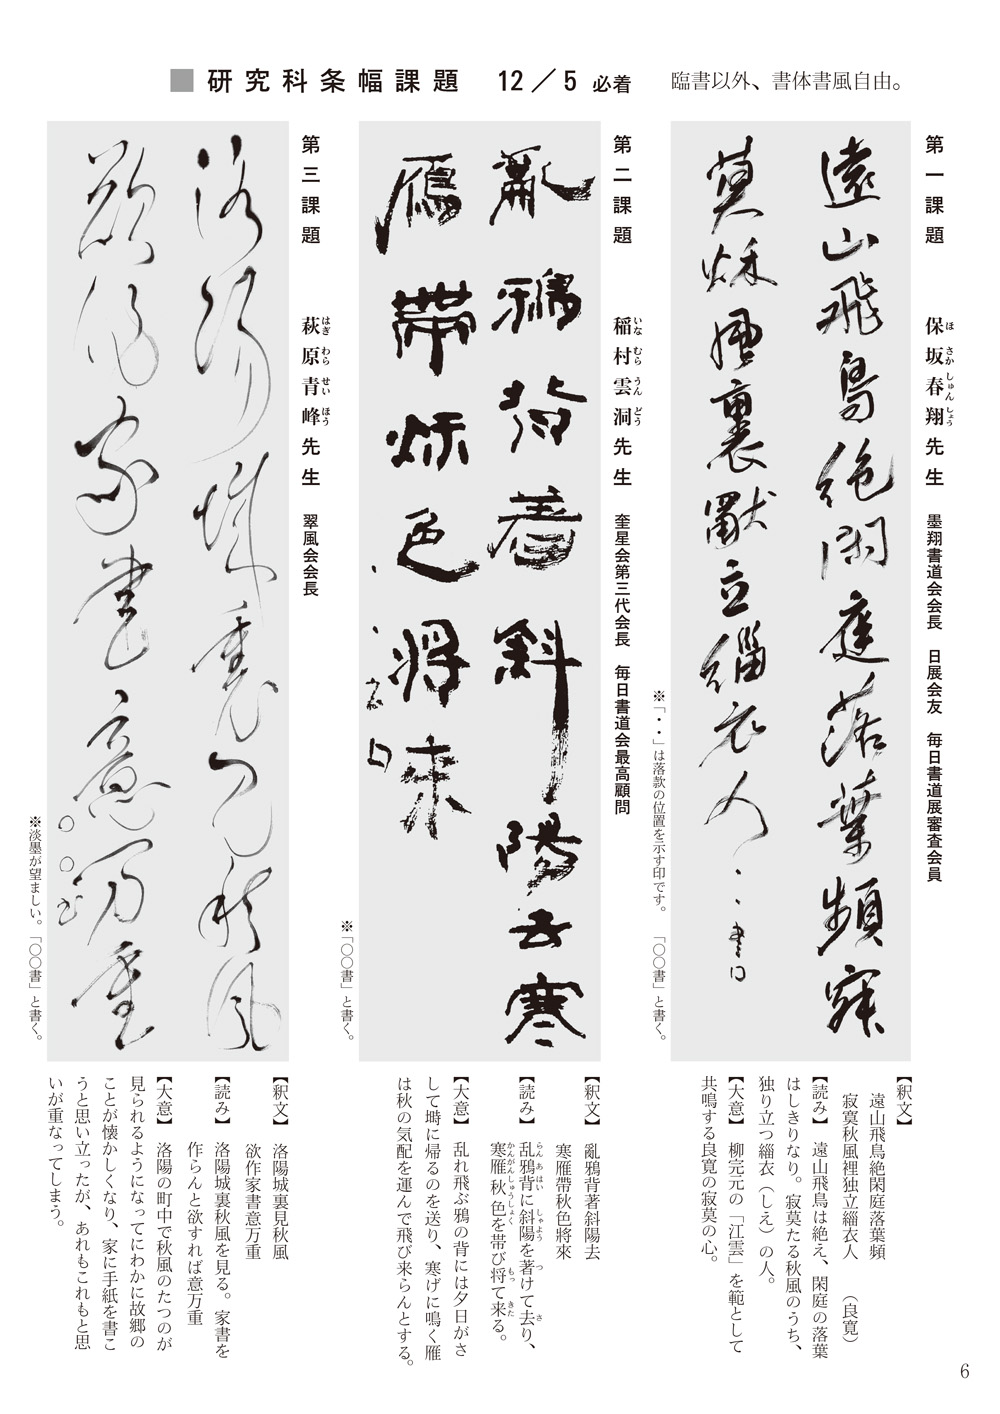 ■研究科条幅課題　12／5 必着　臨書以外、書体書風自由。
第一課題　保坂春翔先生　墨翔書道会会長　日展会友　毎日書道展審査会員
ほ　さか　しゅん　しょう
遠山飛鳥絶閑庭落葉頻寂
莫秋風裏獣立緇衣人・・書口
※「・・」は落款の位置を示す印です。　「〇〇書」と書く。
【釈文】
遠山飛鳥絶閑庭落葉頻
寂寞秋風裡独立緇衣人　（良寛）
【読み】　遠山飛鳥は絶え、閑庭の落葉
はしきりなり。寂莫たる秋風のうち、
独り立つ緇衣（しえ）の人。
【大意】　柳完元の「江雲」を範として
共鳴する良寛の寂莫の心。
第二課題　稲村雲洞先生　奎星会第三代会長　毎日書道会最高顧問
いな　むら　うん　どう
亂鴉背着斜陽去寒
雁帶秋色將來
※「〇〇書」と書く。
【釈文】　亂鴉背著斜陽去
寒雁帶秋色將來
【読み】　乱鴉背に斜陽を著けて去り、
らん　あ　はい　しゃよう　つ　さ
寒雁秋色を帯び将て来る。
かんがんしゅうしょく　もっ　きた
【大意】　乱れ飛ぶ鴉の背には夕日がさ
して塒に帰るのを送り、寒げに鳴く雁
は秋の気配を運んで飛び来らんとする。
第三課題　萩原青峰先生　翠風会会長
はぎ　わら　せい　ほう
洛陽城裏見秋風
欲作家書意万重
〇〇書
※淡墨が望ましい。「〇〇書」と書く。
【釈文】　洛陽城裏見秋風
欲作家書意万重
【読み】　洛陽城裏秋風を見る。家書を
作らんと欲すれば意万重
【大意】　洛陽の町中で秋風のたつのが
見られるようになってにわかに故郷の
ことが懐かしくなり、家に手紙を書こ
うと思い立ったが、あれもこれもと思
いが重なってしまう。
6